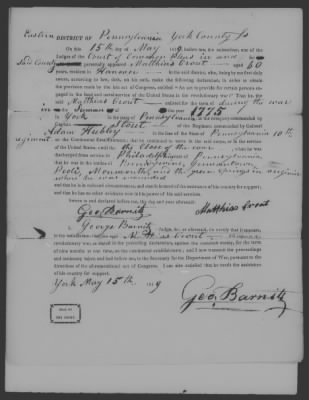 Eastern DISTRICT OF Pennsylvania York County Ss
On this 15th day of May 1819 before me, the subscriber, one of the
Judges of the Court of Common Pleas in and for
Said County personally appeared Matthias Crout aged 60
years, resident in Hanover in the said district, who, being by me first duly
sworn, according to law, doth, on his oath, make the following declaration, in order to obtain
the provision made by the late act of Congress, entitled "An act to provide for certain persons en-
gaged in the land and naval service of the United States in the revolutionary war:" That he, the
said Matthias Crout enlisted for the term of during the war
on the Summer of the year 1775
in York in the state of Pennsylvania in the company commanded by
Captain Stout of the Regiment commanded by Colonel
Adam Hubley in the line of the State of Pennsylvania 10th
regiment on the Continental Establishment; that he continued to serve in the said corps, in the service
of the United States, until the Close of the war when he was
discharged from service in Philadelphia Pennsylvania,
that he was in the battles of Brandywine, Germantown,
Peoli, Monmouth, and the green springs in virginia
when he was wounded
and that he is in reduced circumstances, and stands in need of the assistance of his country for support;
and that he has no other evidence now in his power of his said services.
Sworn to and declared before me, the day and year aforesaid.
Geo. Barnitz Matthias Crout
I, George Barnitz Judge, &c. as aforesaid, do certify that it appears
to my satisfaction, that the said Matthias Crout did serve in the
revolutionary war, as stated in the preceding declaration, against the common enemy, for the term
of nine months, at one time, on the continental establishment; and I now transmit the proceedings
and testimony taken and had before me, to the Secretary for the Department of War, pursuant to the
directions of the aforementioned act of Congress. I am also satisfied that he needs the assistance
of his country for support.
York May 15th 1819
Geo. Barnitz